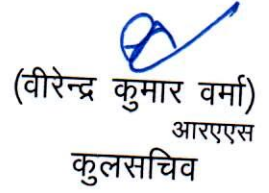 (वीरेन्द्र कुमार वर्मा)
आरएएस
कुलसचिव